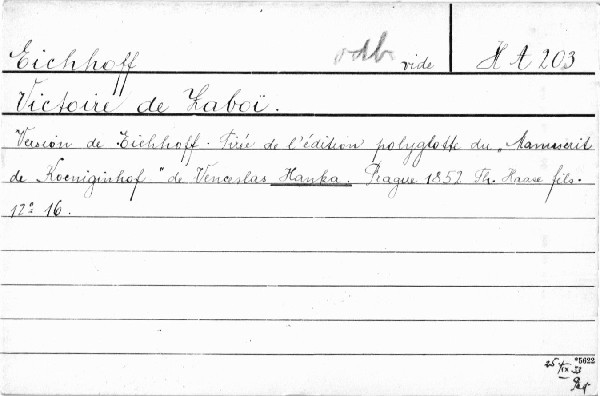 Eichhoff odb. vide H A 203
Victoire de Zaboï.
Version de Eichhoff. Tirée de l'édition polyglotte du „Manuscrit
de Koeniginhof" de Venceslas Hanka. Prague 1852 Th. Haase fils.
12° 16.
25 *5622